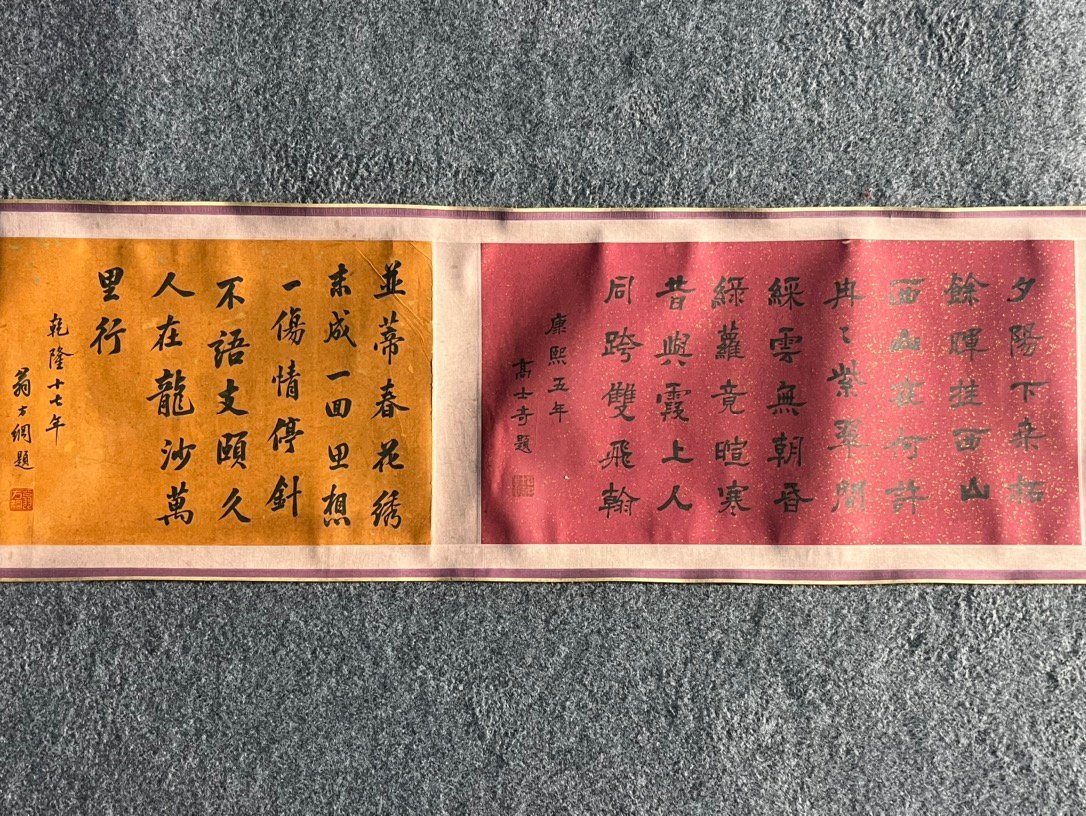 夕陽下桒柘
餘暉挂西山
西山在何許
冉〻紫翠間
綵雲無朝昏
綠蘿竟暄寒
昔與霞上人
同跨雙飛翰
康熙五年
高士奇題
並蒂春花綉
未成一回思想
一傷情停針
不語支頤久
人在龍沙萬
里行
乾隆十七年
翁方綱題